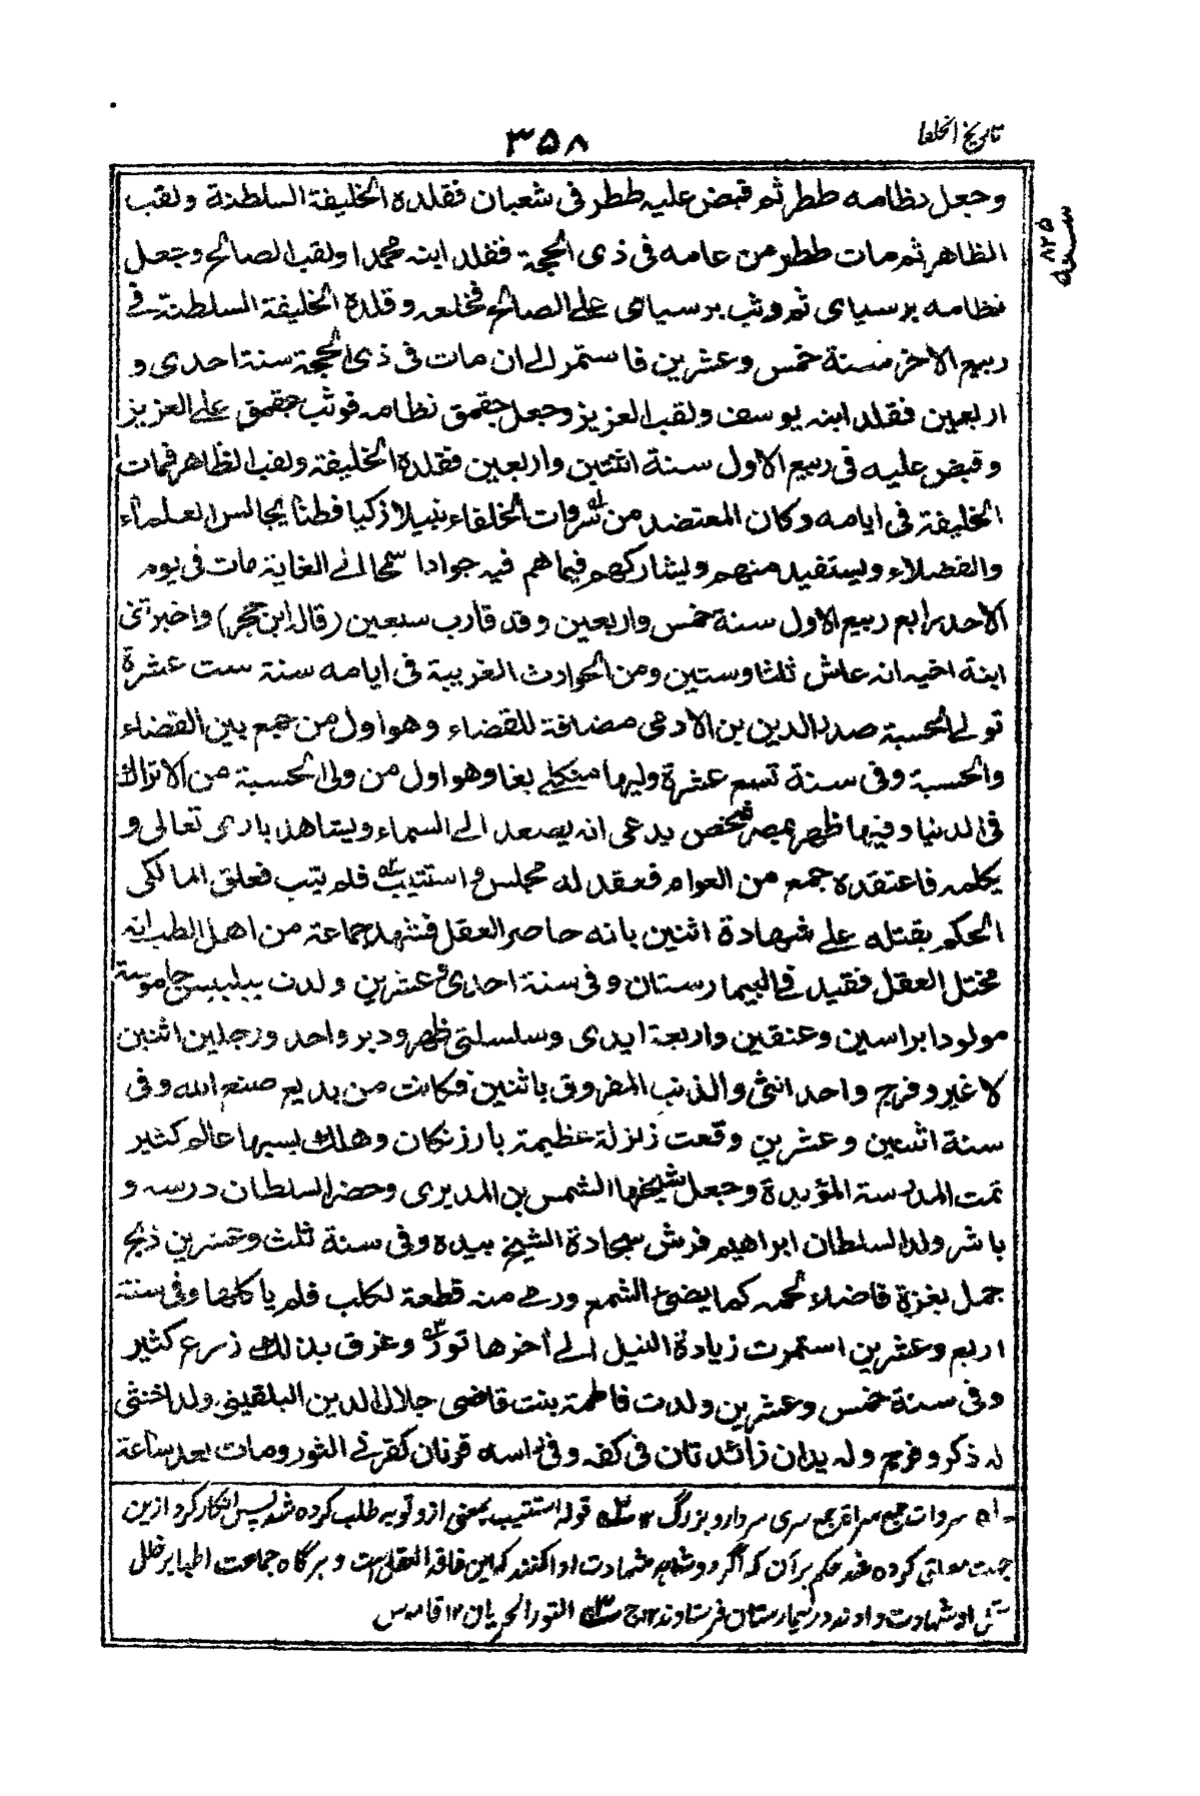 تاريخ الخلفا
٣٥٨
سنة ٨٢٥
وجعل نظامه ططر ثم قبض عليه ططر فى شعبان فقلده الخليفة السلطنة ولقب
الظاهر ثم مات ططر من عامه فى ذى الحجة فقلد ابنه محمدا ولقب الصالح وجعل
نظامه برسباى ثم وثب برسباى على الصالح فخلعه وقلده الخليفة السلطنة فى
ربيع الاخر سنة خمس وعشرين فاستمر الى ان مات فى ذى الحجة سنة احدى و
اربعين فقلد ابنه يوسف ولقب العزيز وجعل جقمق نظامه فوثب جقمق على العزيز
وقبض عليه فى ربيع الاول سنة اثنتين واربعين فقلده الخليفة ولقب الظاهر فمات
الخليفة فى ايامه وكان المعتضد من سروات الخلفاء نبيلا ذكيا فطنا يجالس العلماء
والفضلاء ويستفيد منهم ويشاركهم فيما هم فيه جوادا سمحا الى الغاية مات فى يوم
الاحد رابع ربيع الاول سنة خمس واربعين وقد قارب سبعين (قال ابن حجر) واخبرتنى
ابنة اخيه انه عاش ثلثا وستين ومن الحوادث الغريبة فى ايامه سنة ست عشرة
تولى الحسبة صدر الدين بن الادمى مضافة للقضاء وهو اول من جمع بين القضاء
والحسبة وفى سنة تسع عشرة وليها منكلى بغا وهو اول من ولى الحسبة من الاتراك
فى الدنيا وفيها ظهر بمصر شخص يدعى انه يصعد الى السماء ويشاهد بارى تعالى و
يكلمه فاعتقده جمع من العوام فعقد له مجلس واستتيب فلم يتب فعلق المالكى
الحكم بقتله على شهادة اثنين بانه حاضر العقل فشهد جماعة من اهل الطب انه
مختل العقل فقيد فى البيمارستان وفى سنة احدى عشرين ولدت ببلبيس جاموسة
مولودا براسين وعنقين واربعة ايدى وسلسلتى ظهر ودبر واحد ورجلين اثنين
لا غير وفرج واحد انثى والذنب المفروق باثنين فكانت من بديع صنع الله وفى
سنة اثنين وعشرين وقعت زلزلة عظيمة بارزنكان وهلك بسببها عالم كثير
تمت المدرسة المؤيدة وجعل شيخها الشمس بن المديرى وحضر السلطان درسه و
باشر ولد السلطان ابراهيم فرش سجادة الشيخ بيده وفى سنة ثلث وعشرين ذبح
جمل بغزة فاضاء لحمه كما يضئ الشمع ورمى منه قطعة لكلب فلم ياكلها وفى سنة
اربع وعشرين استمرت زيادة النيل الى اخرها تور وغرق بذلك زرع كثير
وفى سنة خمس وعشرين ولدت فاطمة بنت قاضى جلال الدين البلقينى ولدا خنثى
له ذكر وفرج وله يدان زائدتان فى كفه وفى راسه قرنان كقرنى الثور ومات بعد ساعة
١ه سروات جمع سراة جمع سرى سردار و بزرگ ١٢ ٢ه قوله استتيب يعنى از و توبه طلب كرده شد پس انكار كرد ازين
جهت معلق كرده شد حكم بر آن كه اگر دو شاهد شهادت ادا كنند كه اين فاقد العقل است و هرگاه جماعت اطبا بر خلل
او شهادت دادند در بيمارستان فرستادند ١٢ ٣ه التور الجريان ١٢ قاموس